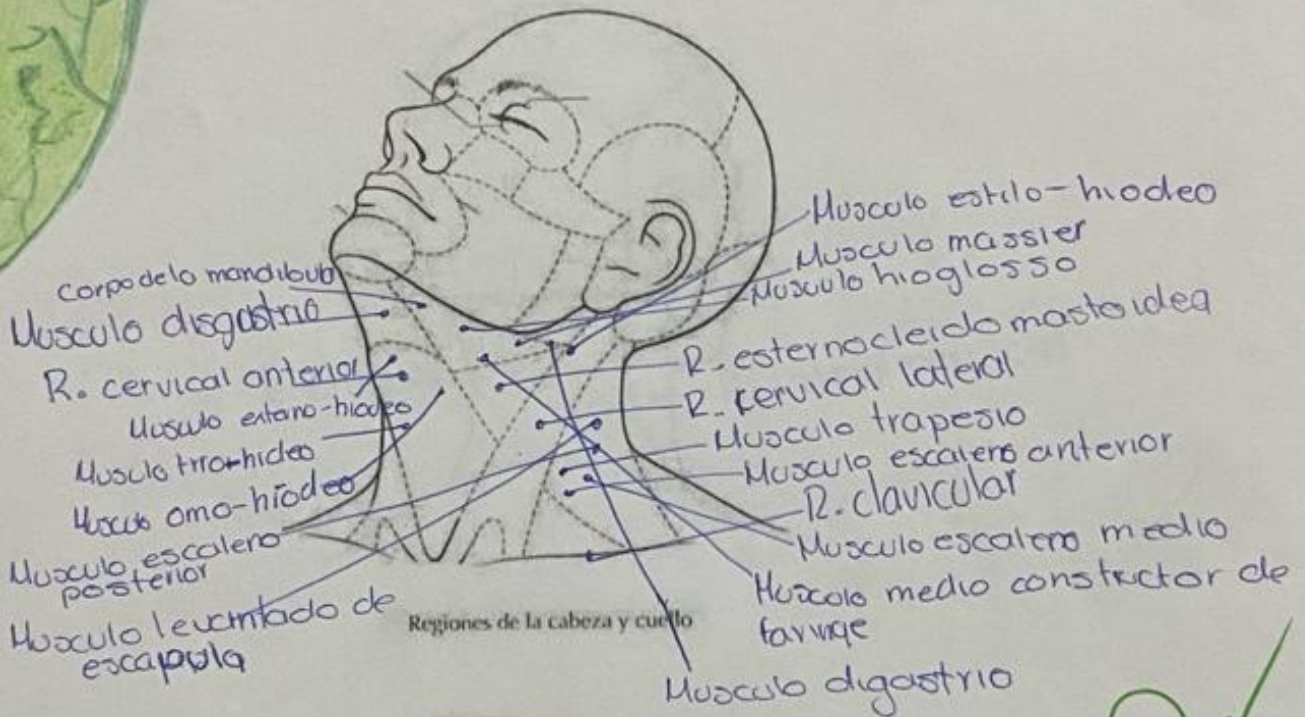 Corpo de lo mandibub
Musculo disgastrio
R. cervical anterior
Musculo estano-hiodeo
Musclo tirro-hideo
Musculo omo-hiodeo
Musculo escalero
posterior
Musculo levantado de
escapula
Musculo estilo-hiodeo
Musculo massier
Musculo hioglosso
R. esternocleidomastoidea
R. cervical lateral
Musculo trapesio
Musculo escalero anterior
R. clavicular
Musculo escalero medio
Musculo medio constructor de
faringe
Musculo digastrio
Regiones de la cabeza y cuello